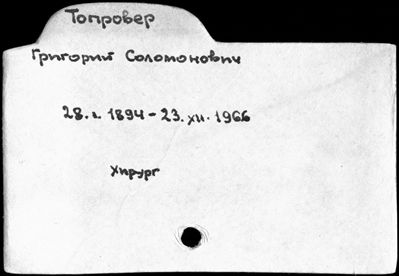 Топровер
Григорий Соломонович
28.I.1894-23.XII.1966
хирург